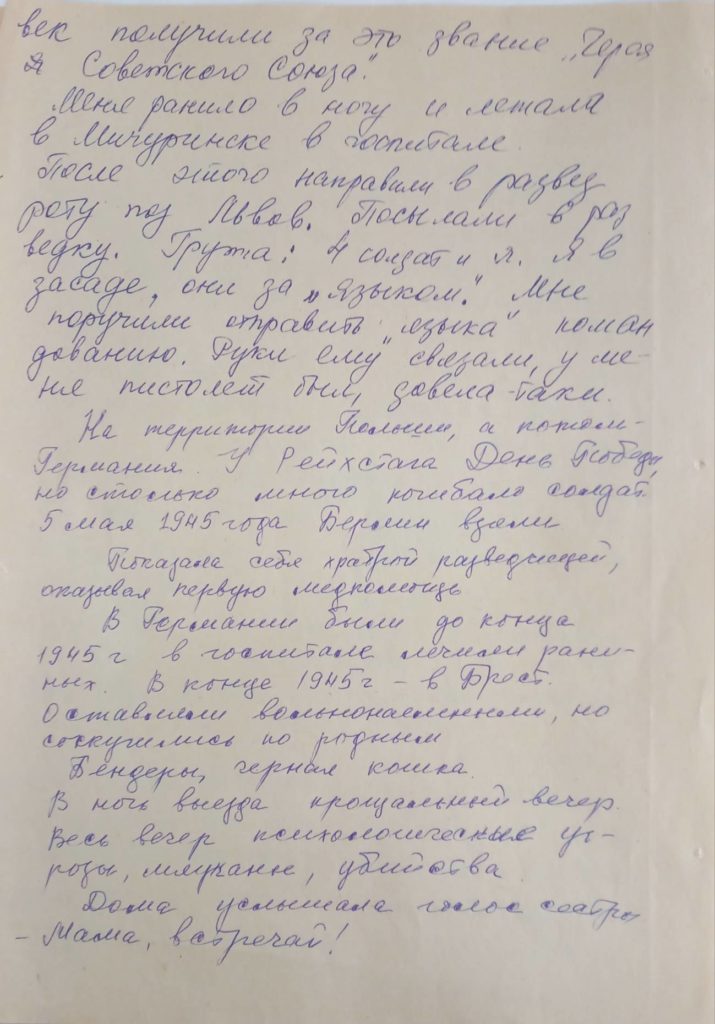 век получили за это звание „Героя
я Советского Союза".
Меня ранило в ногу и лежала
в Мичуринске в госпитале.
После этого направили в развед
роту под Львов. Посылали в раз
ведку. Группа: 4 солдат и я. Я в
засаде, они за „языком". Мне
поручили отправить „языка" коман
дованию. Руки ему связали, у ме-
ня пистолет был, довела-таки.
На территории Польши, а потом-
Германия. У Рейхстага День Победы,
но столько много погибало солдат.
5 мая 1945 года Берлин взяли
Показала себя храброй разведчицей,
оказывая первую медпомощь
В Германии были до конца
1945 г в госпитале лечили ране-
ных. В конце 1945 г – в Брест.
Оставляли вольнонаемными, но
соскучились по родным
Бендеры, черная кошка.
В ночь выезда прощальный вечер.
Весь вечер психологические уг-
розы, мяуканье, убийства
Дома услышала голос сестры
– Мама, встречай!